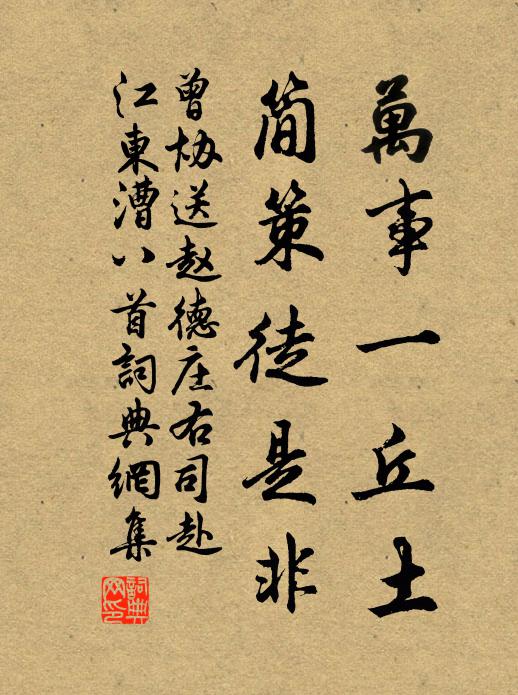 萬事一丘土
简策徒是非
曾协送赵德庄右司赴
江東漕八首詞典網集
詞典網印